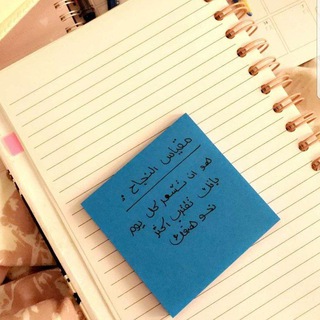 مقياس النجاح :
هو ان تشعر كل يوم
بانك تقترب اكثر
نحو هدفك